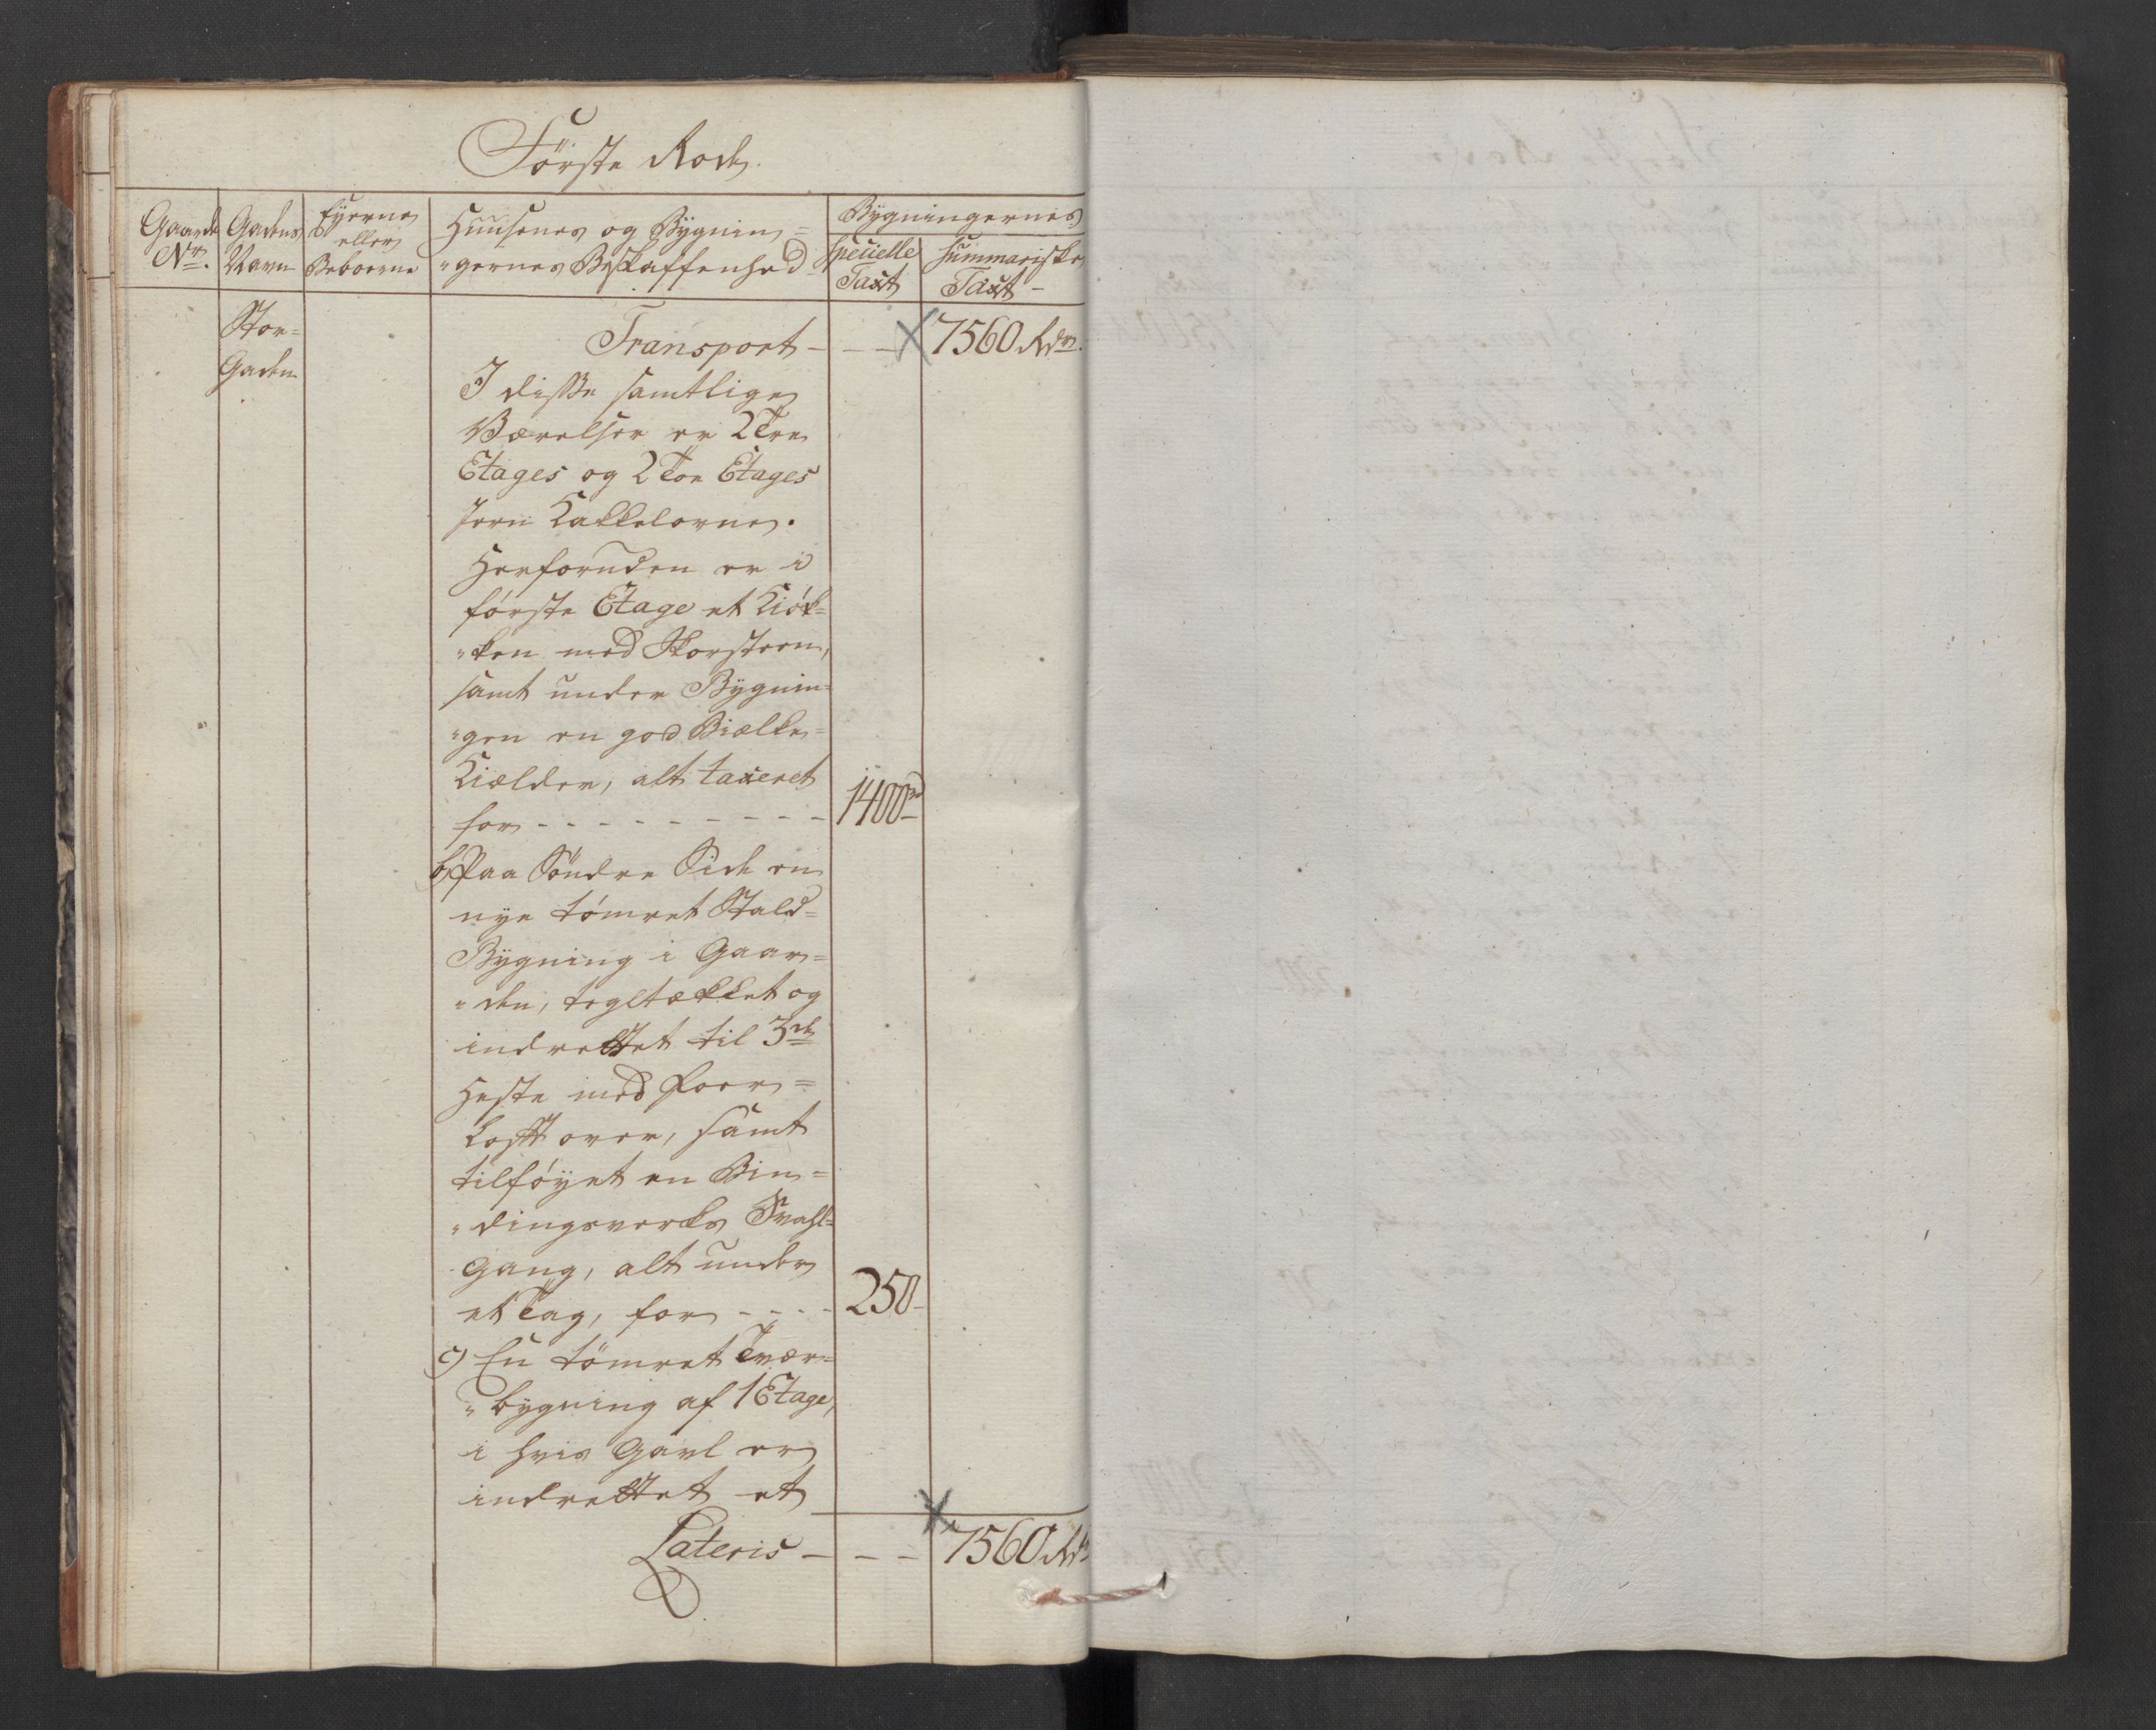 Förste Rode
Gaards
Nr.
Gadens
Navn
Eÿerne
eller
Beboerne
Huusenes og Bÿgnin=
"gernes Beskaffenhed
Bygningernes
Specielle
Taxt
Summariske
Taxt
Stor=
Gaden
Transport - - - 7560 Rdr.
I disse samtlige
Værelser er 2 Tre
Etages og 2 Toe Etages
Jern Kakkelovne.
Herforuden er i
förste Etage et Kiök=
"ken med Skorsteen,
samt under Bÿgnin=
"gen en god Bielke=
Kielder, alt taxeret
for - - - - - - - - - 1400 rd
b) Paa Söndre Side en
nye tömret Stald=
Bÿgning i Gaar=
"den, tegltækket og
indrettet til 3de
Heste med Foer=
Loft over, samt
tilföÿet en Bin=
"dingsverks Svahl=
Gang, alt under
et Tag, for - - - - 250 -
c) En tömret Tvær=
"bygning af 1 Etage,
i hvis Gavl er
indrettet et
Lateris - - - 7560 Rdr